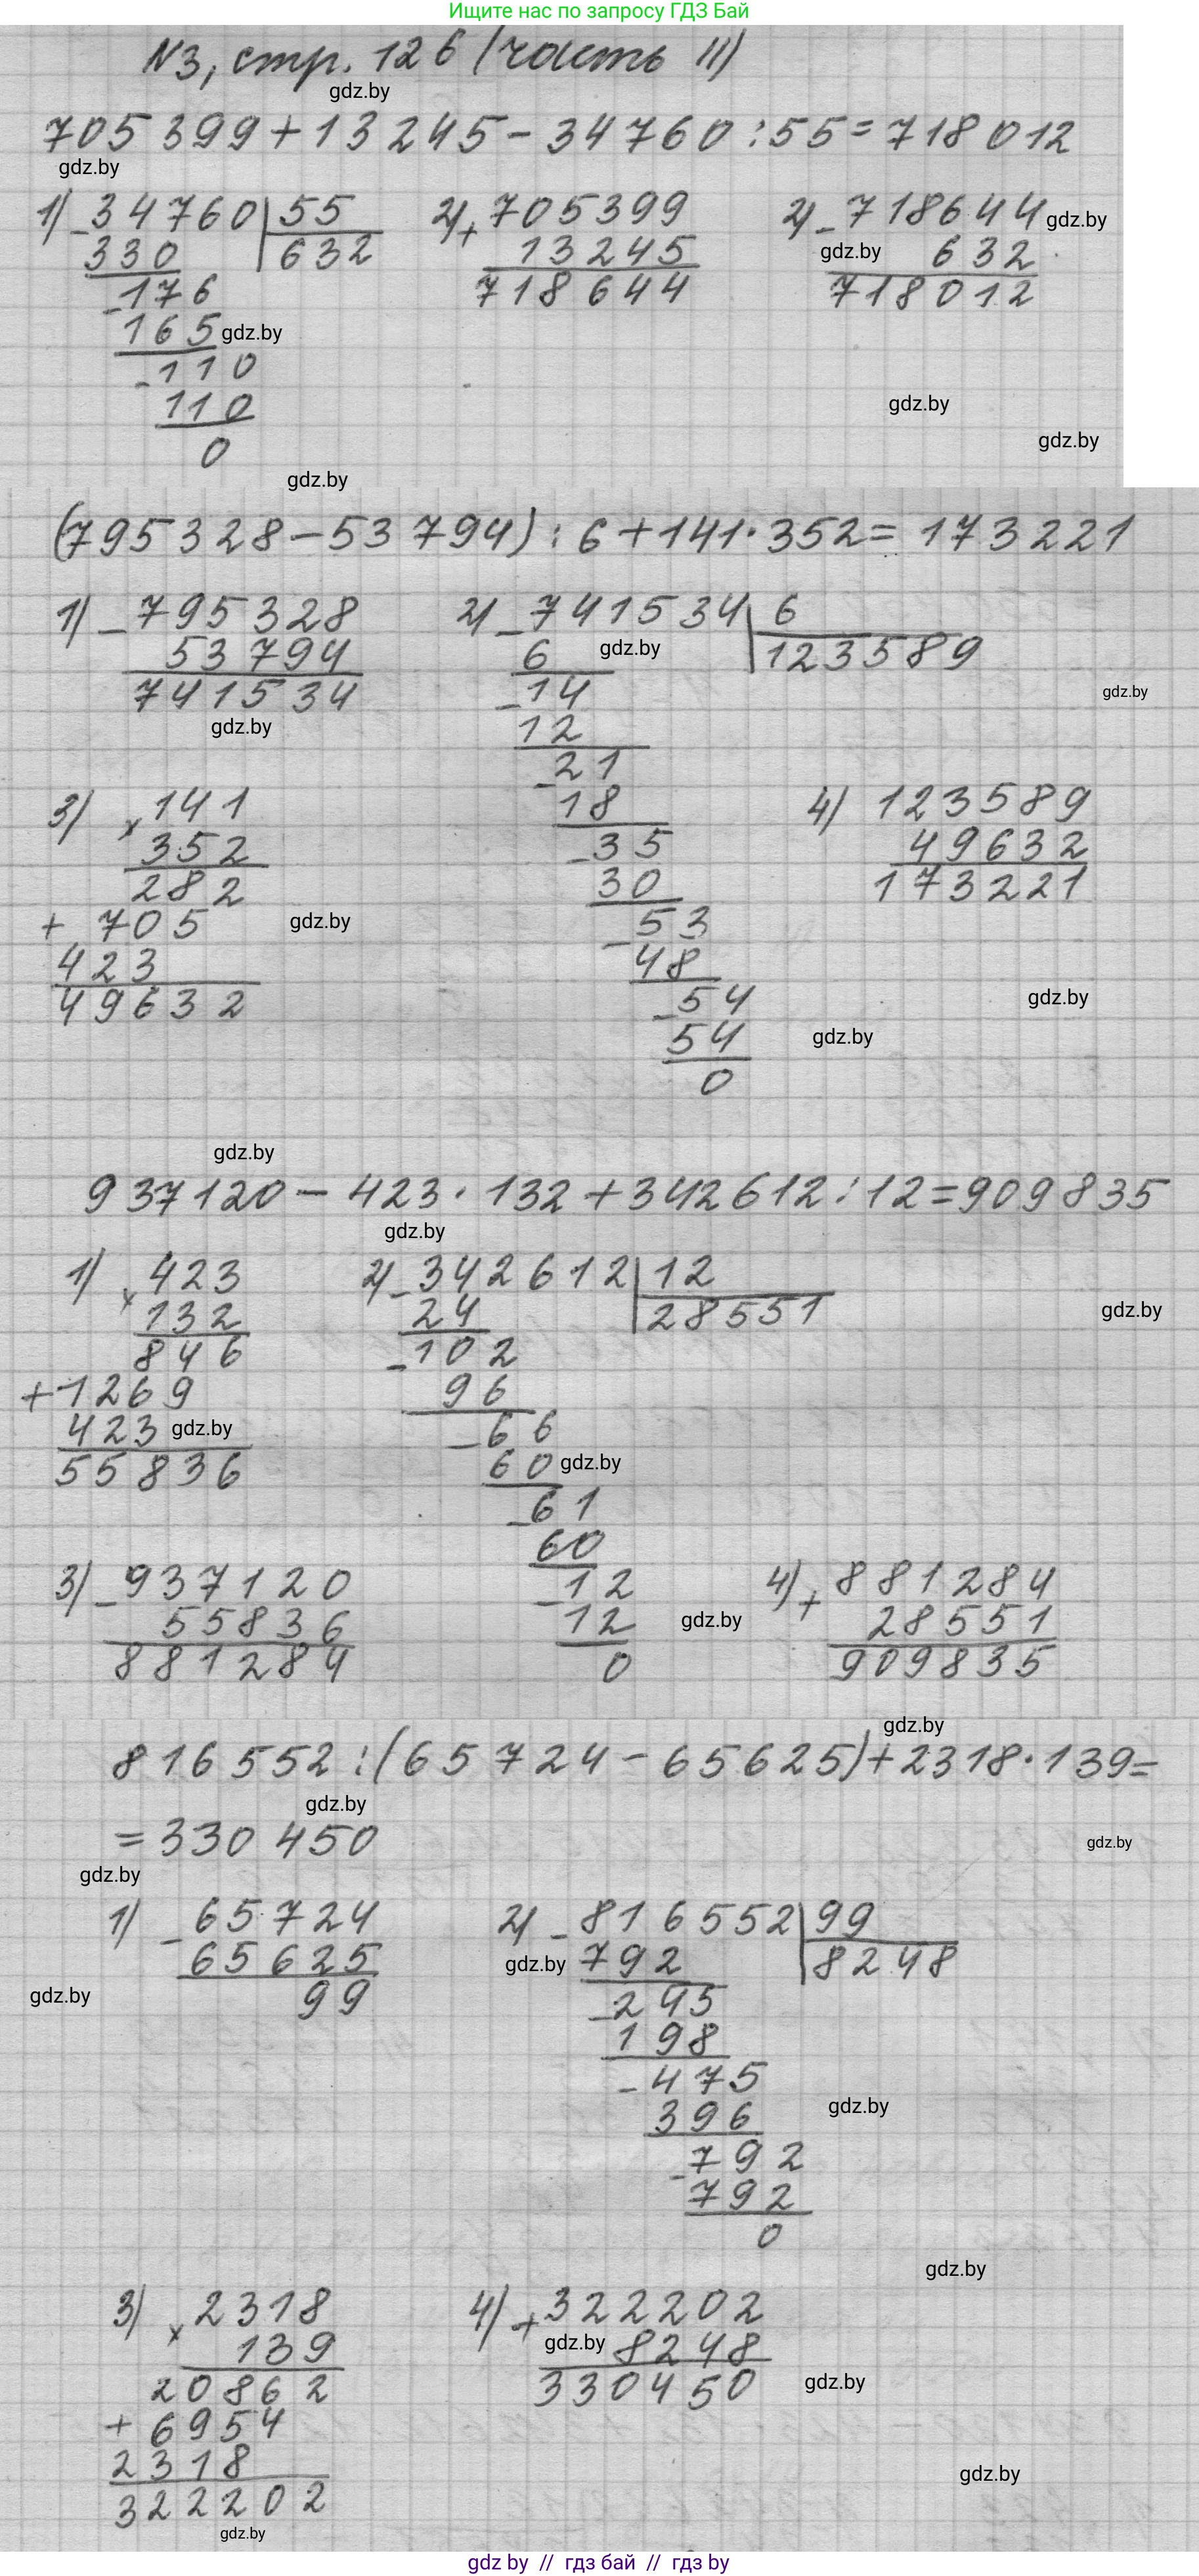 Ищите нас по запросу ГДЗ Бай
N3, стр. 126 (часть II)
gdz.by
705 399 + 13 245 - 34 760 : 55 = 718 012
gdz.by
1) - 34760 | 55 2) + 705399 2) - 718644 gdz.by
330 632 13245 gdz.by 632
- 176 718644 718012
165 gdz.by
- 110
110 gdz.by
0 gdz.by
gdz.by
(795 328 - 53 794) : 6 + 141 · 352 = 173 221
1) - 795328 2) - 741534 | 6
53794 6 gdz.by 123589
741534 - 14 gdz.by
gdz.by 12
- 21
3) x 141 18 4) 123589
352 - 35 49632
282 30 173221
+ 705 gdz.by - 53
423 48
49632 - 54 gdz.by
54 gdz.by
0
gdz.by
937120 - 423 · 132 + 342612 : 12 = 909835
gdz.by
1) x 423 2) - 342612 | 12
132 24 28551 gdz.by
846 - 102
+ 1269 96
423 gdz.by - 66
55836 60 gdz.by
- 61
60
3) - 937120 - 12 4) + 881284
55836 12 gdz.by 28551
881284 0 909835
gdz.by
816 552 : (65 724 - 65 625) + 2318 · 139 =
gdz.by
= 330 450 gdz.by
gdz.by
1) - 65724 2) - 816552 | 99
65625 gdz.by 792 8248
gdz.by 99 - 245
198
- 475
396 gdz.by
- 792
792
0
gdz.by
3) x 2318 4) + 322202
139 gdz.by 8248
20862 330450 gdz.by
+ 6954
2318 gdz.by
322202
gdz.by
gdz by // гдз бай // гдз by